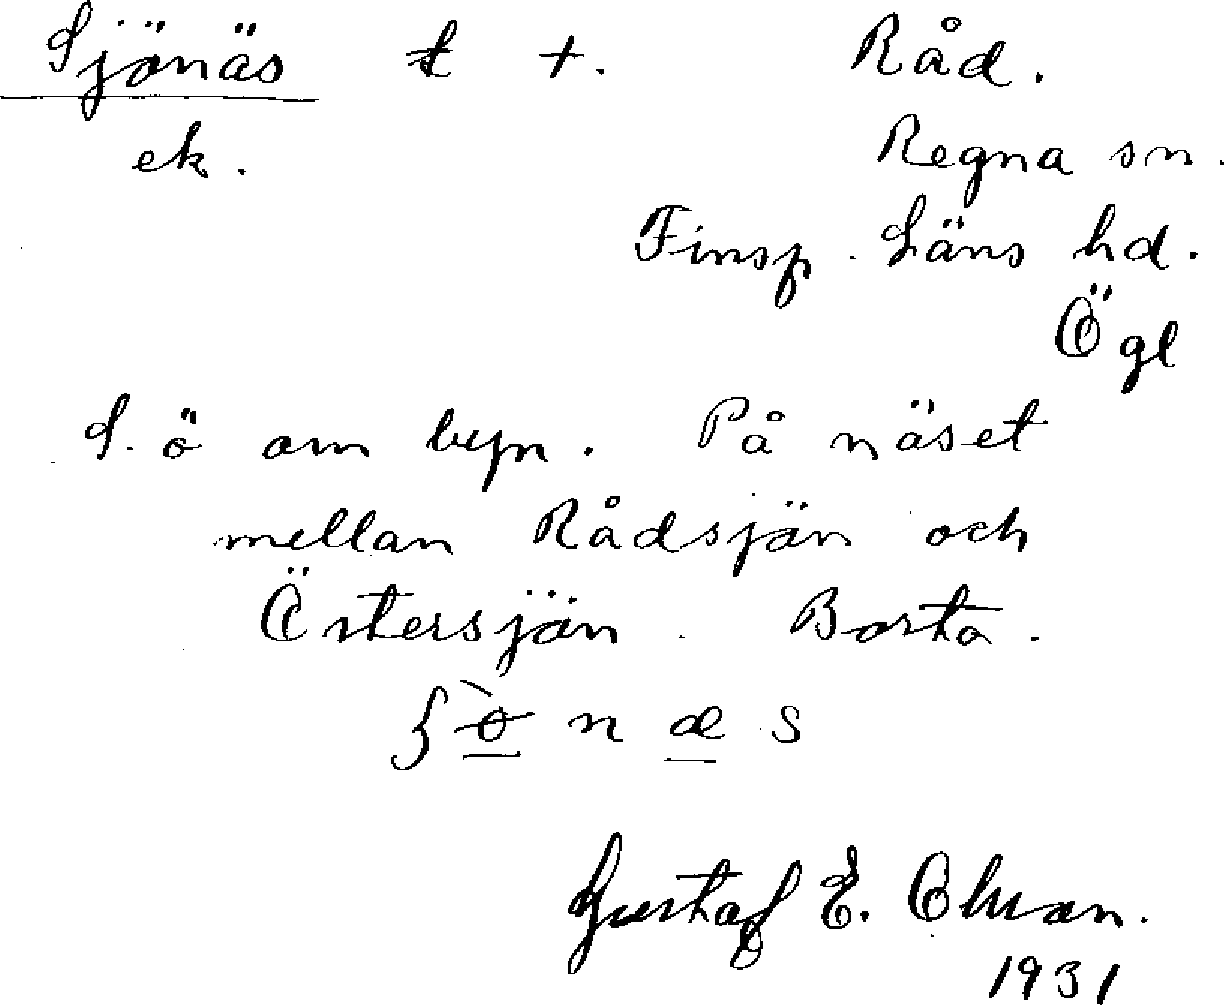 Sjönäs t +. Råd.
ek. Regna sn.
Finsp. Läns hd.
Ögl
S. ö om byn. På näset
mellan Rådsjön och
Östersjön. Borta.
Gustaf E.
1931